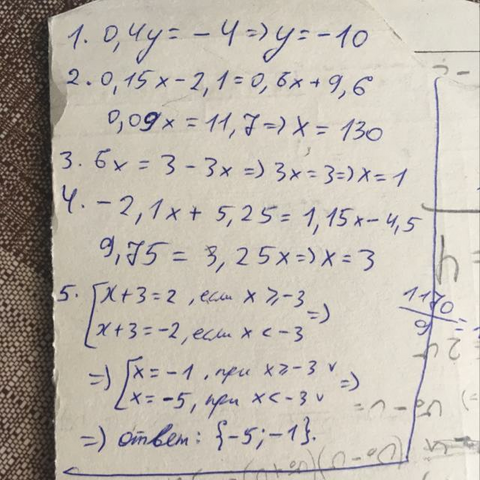 1. 0,4y = -4 => y = -10
2. 0,15x - 2,1 = 0,6x + 9,6
0,09x = 11,7 => x = 130
3. 6x = 3 - 3x => 3x = 3 => x = 1
4. -2,1x + 5,25 = 1,15x - 4,5
9,75 = 3,25x => x = 3
5. [x + 3 = 2, если x ≥ -3
x + 3 = -2, если x < -3 =>
=> [x = -1, при x ≥ -3 v
x = -5, при x < -3 v =>
=> ответ: {-5; -1}.
1170
9